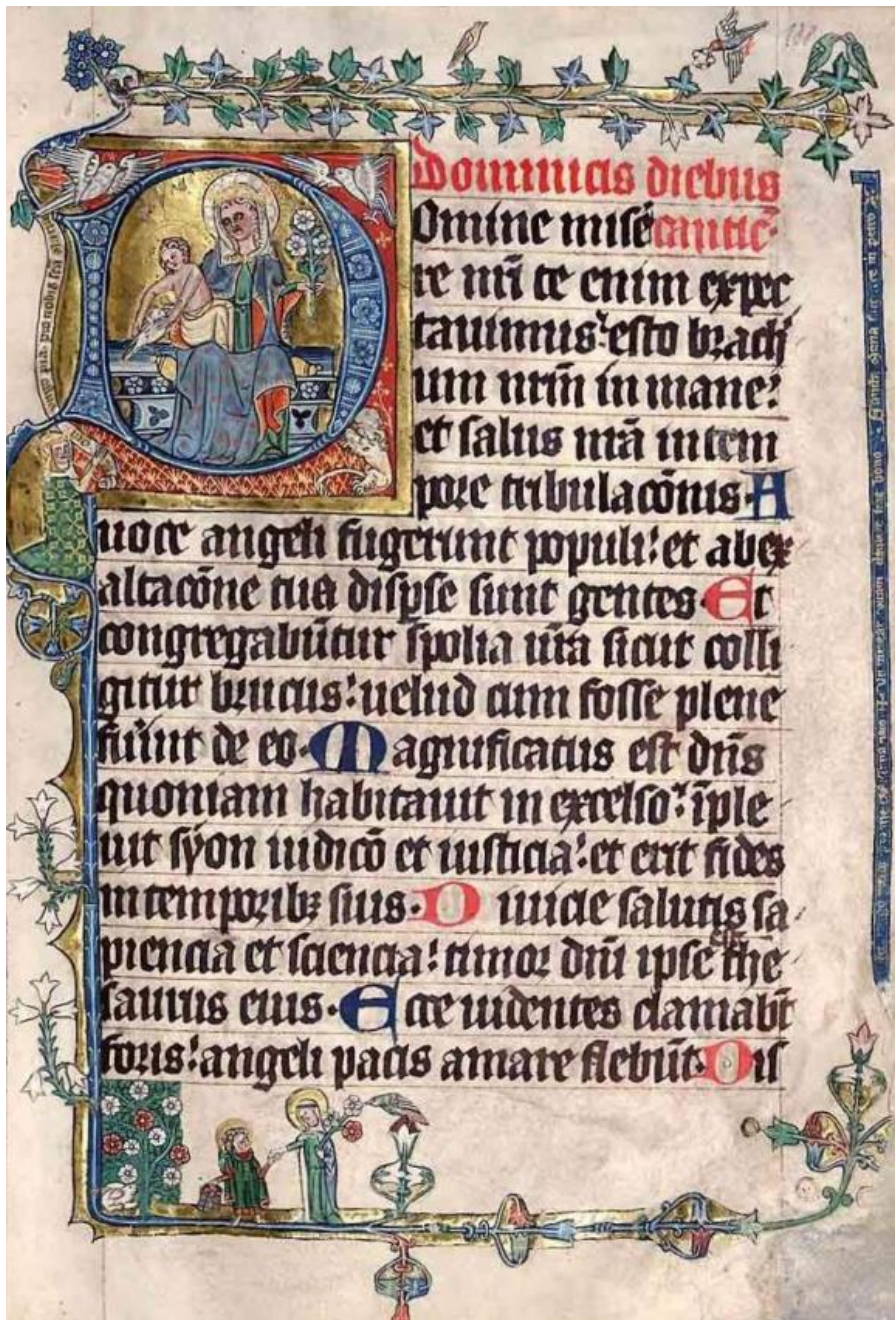 Dominicis diebus
Domine misē cantic̄
re nr̄i te enim expec
tauimus: esto brachi
um nr̄m in mane:
et salus nr̄a in tem
pore tribulac̄onis. A
uoce angeli fugerunt populi: et ab ex
altac̄one tua disp̄se sunt gentes. Et
congregabūtur spolia ur̄a sicut colli
gitur brucus: uelud cum fosse plene
fu̓int de eo. Magnificatus est dn̄s
quoniam habitauit in excelso: īple
uit syon iudicō et iusticia: et erit fides
in temporibꝫ suis. Diuicie salutis sa
piencia et sciencia: timor dn̄i ipse the
saurus eius. Ecce uidentes clamabūt
foris: angeli pacis amare flebūt. Dis
pro nobis